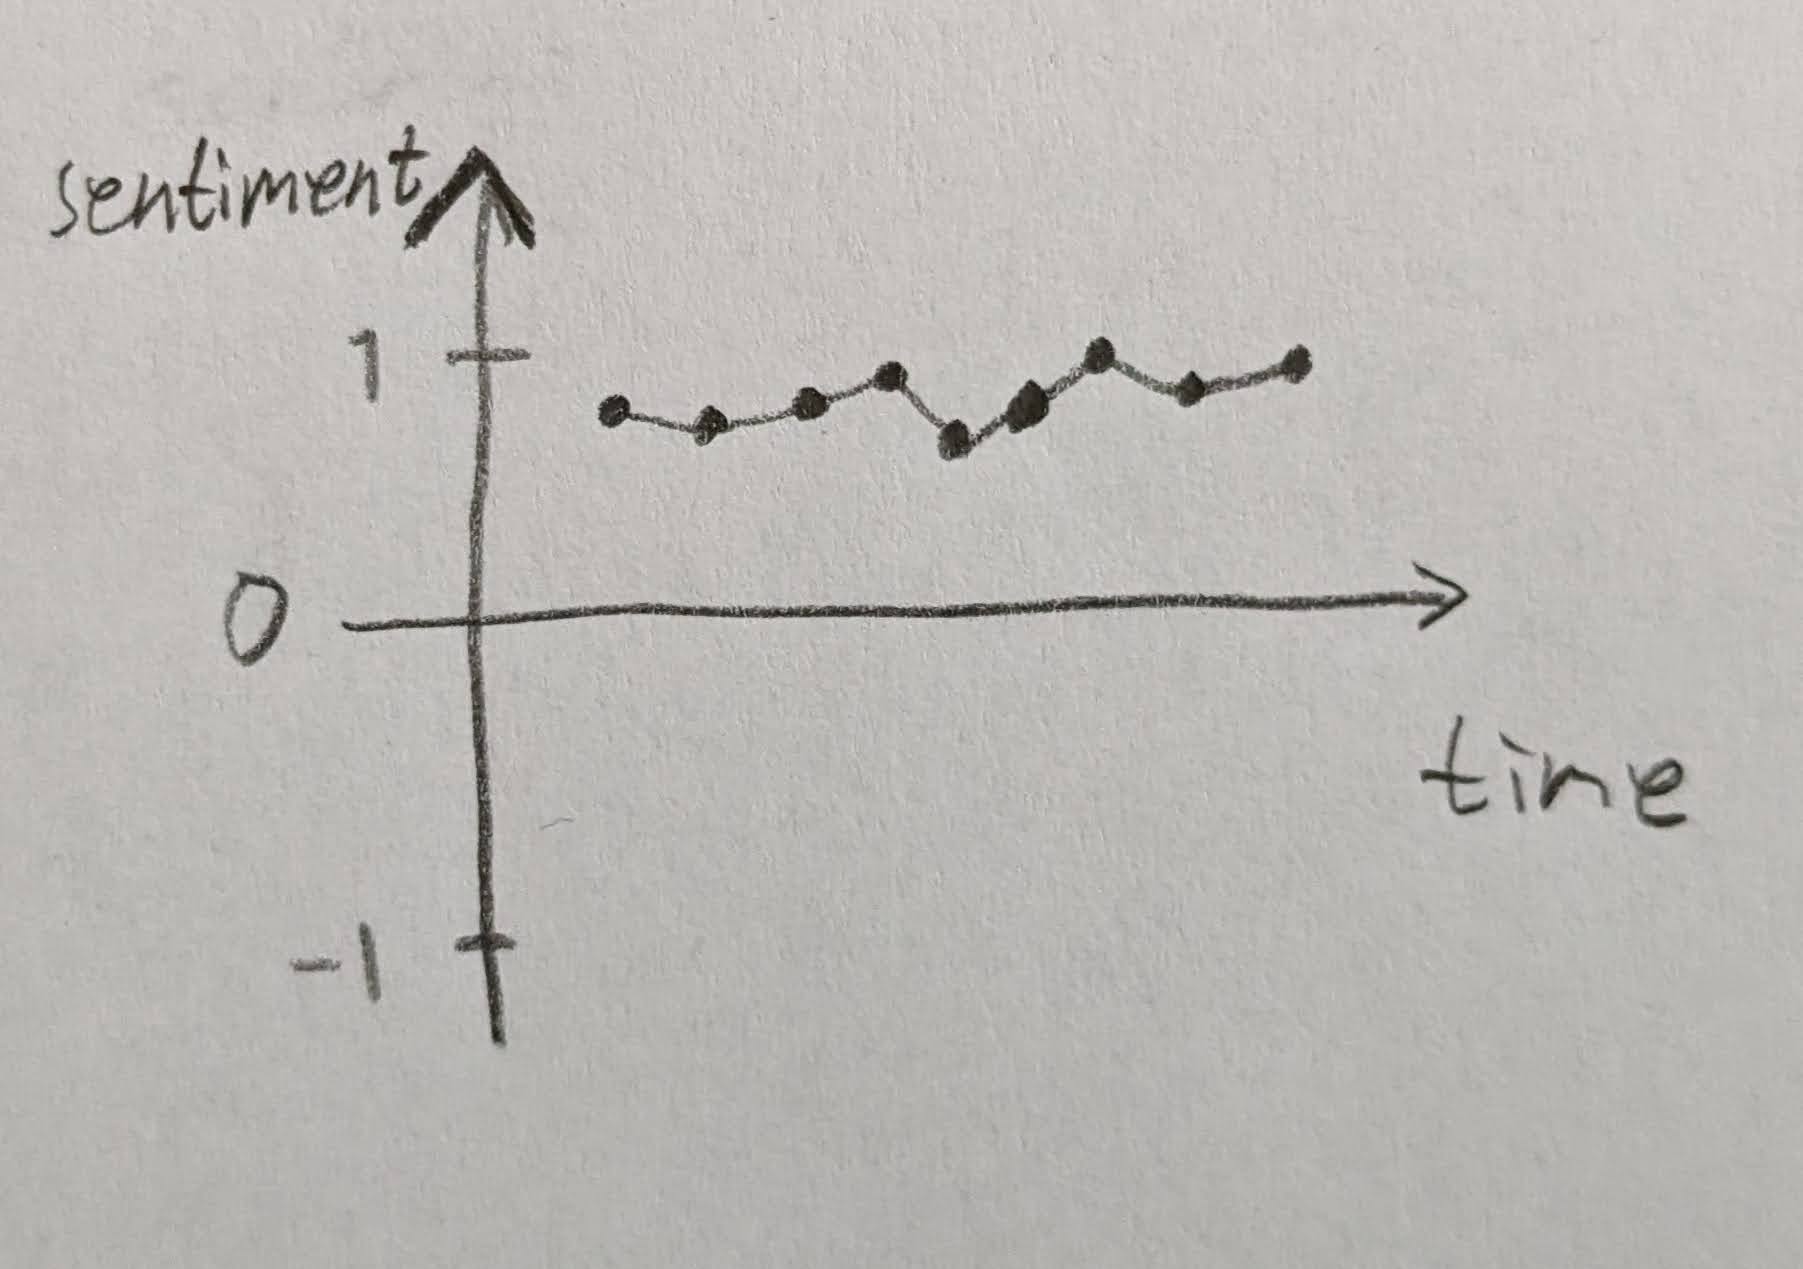 sentiment
1
0
time
-1